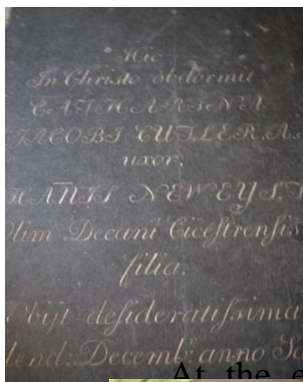 Hic
In Christo obdormit
CATHARINA
JACOBI CUTLER, A
uxor,
HANIS NEWEYS,
olim Decani Cicestrensis
filia.
Obijt desideratissima
Decemb: anno
At the